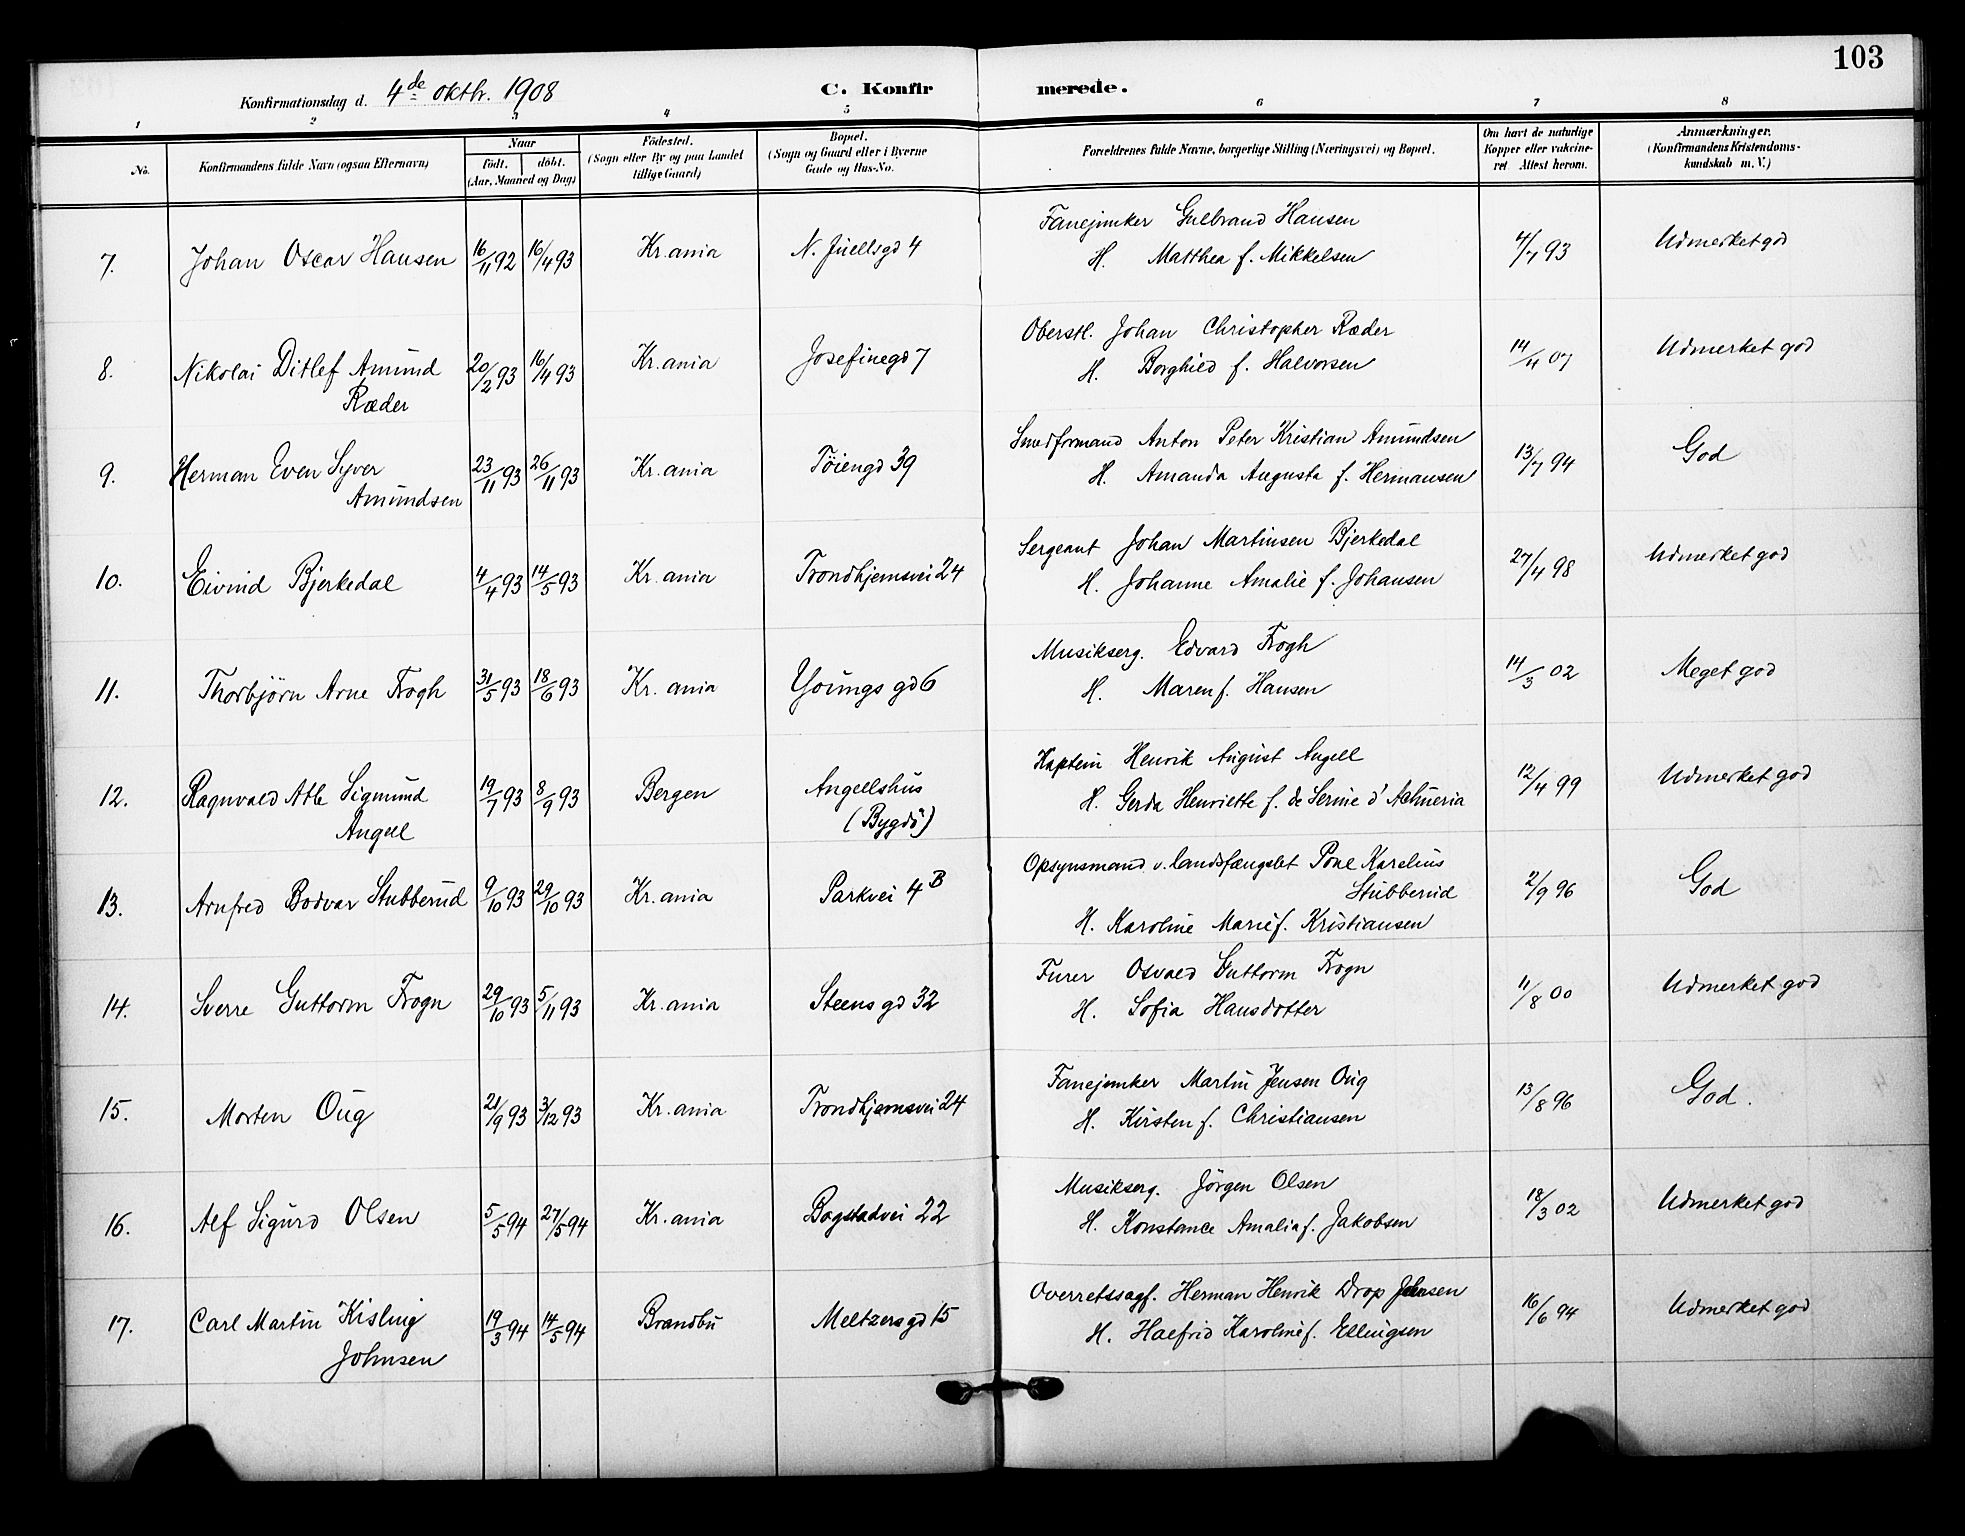 103
Konfirmationsdag d. 4de oktbr. 1908
C. Konfirmerede.
1 2 3 4 5 6 7 8
No.
Konfirmandens fulde Navn (ogsaa Efternavn)
Naar
født. døbt.
(Aar, Maaned og Dag)
Födested.
(Sogn eller By og paa Landet
tillige Gaard)
Bopæl.
(Sogn og Gaard eller i Byerne
Gade og Hus-No.
Forældrenes fulde Navne, borgerlige Stilling (Næringsvei) og Bopæl.
Om havt de naturlige
Kopper eller vakcine-
ret. Attest herom.
Anmærkninger.
(Konfirmandens Kristendoms-
kundskab m. V.)
7. Johan Oscar Hansen 16/11 92 16/4 93 Kr.ania N. Juellsgd 4 Fanejunker Gulbrand Hansen 4/7 93 Udmerket god
H. Matthea f. Mikkelsen
8. Nikolai Ditlef Amund 20/2 93 16/4 93 Kr.ania Josefinegd 7 Oberstl. Johan Christopher Ræder 14/11 07 Udmerket god
Ræder H. Borghild f. Halvorsen
9. Herman Even Syver 23/11 93 26/11 93 Kr.ania Töiengd 39 Smedformand Anton Peter Kristian Amundsen 13/7 94 God
Amundsen H. Amanda Augusta f. Hermansen
10. Eivind Bjerkedal 4/4 93 14/5 93 Kr.ania Trondhjemsvei 24 Sergeant Johan Martinsen Bjerkedal 27/4 98 Udmerket god
H. Johanne Amalie f. Johansen
11. Thorbjörn Arne Trogh 31/5 93 18/6 93 Kr.ania Youngsgd 6 Musikserg. Edvard Trogh 14/3 02 Meget god
H. Maren f. Hansen
12. Ragnvald Atle Sigmund 19/7 93 8/9 93 Bergen Angellshus Kaptein Henrik August Angell 12/4 99 Udmerket god
Angell (Bygdö) H. Gerda Henriette f. de Serine d'
13. Arnfred Bodvar Stubberud 9/10 93 29/10 93 Kr.ania Parkvei 4 B Opsynsmand v. landsfængslet Karelius 2/9 96 God
Stubberud
H. Karoline Marie f. Kristiansen
14. Sverre Guttorm Trogn 29/10 93 5/11 93 Kr.ania Steensgd 32 Furer Osvald Guttorm Trogn 11/8 00 Udmerket god
H. Sofia Hansdotter
15. Morten Oug 21/9 93 3/12 93 Kr.ania Trondhjemsvei 24 Fanejunker Martin Jensen Oug 13/8 96 God.
H. Kirsten f. Christiansen
16. Alf Sigurd Olsen 5/5 94 27/5 94 Kr.ania Bogstadvei 22 Musikserg. Jörgen Olsen 18/3 02 Udmerket god
H. Konstance Amalia f. Jakobsen
17. Carl Martin Kisling 19/3 94 14/5 94 Brandbu Meltzersgd 15 Overretssagf. Herman Henrik Drop Johnsen 16/6 94 Udmerket god
Johnsen H. Halfrid Karoline f. Ellingsen